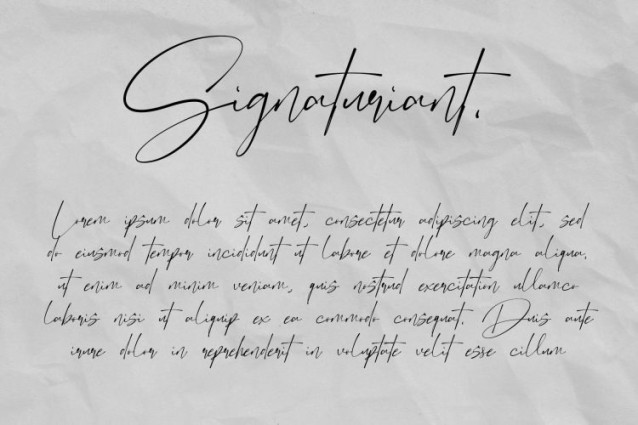 Signaturiant.
Lorem ipsum dolor sit amet, consectetur adipiscing elit, sed
do eiusmod tempor incididunt ut labore et dolore magna aliqua.
ut enim ad minim veniam, quis nostrud exercitation ullamco
laboris nisi ut aliquip ex ea commodo consequat. Duis aute
irure dolor in reprehenderit in voluptate velit esse cillum